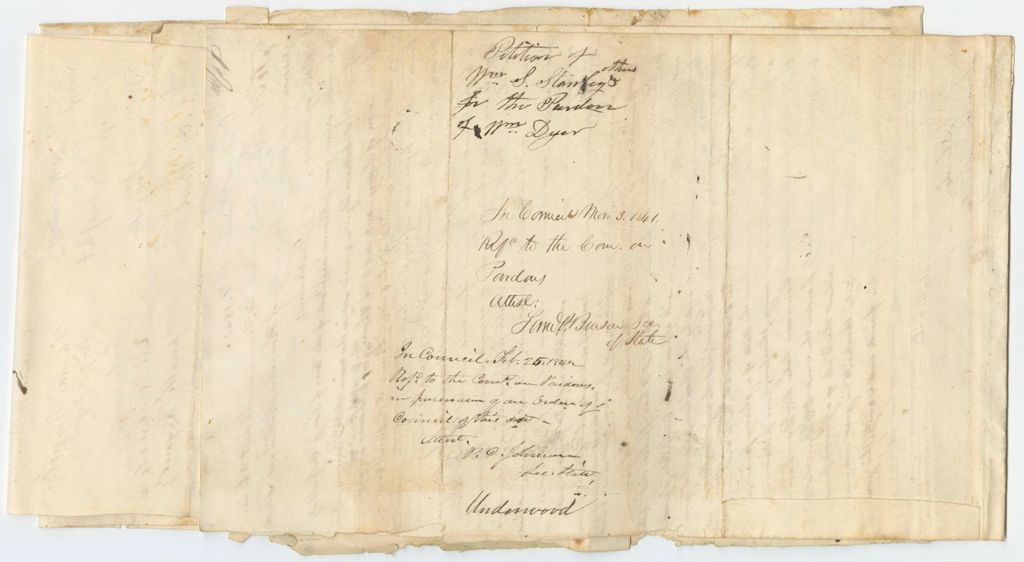 Petition of
Wm S. Stanley & others
for the Pardon
of Wm. Dyer
In Council Nov. 3. 1841.
Refd to the Com. on
Pardons
Attest:
Saml P. Benson Sec.
of State
In Council, Feb. 25. 1842
Refd. to the Comtee on Pardons,
in pursuance of an Order of
Council of this date –
Attest.
P. C. Johnson
Sec. State
Underwood